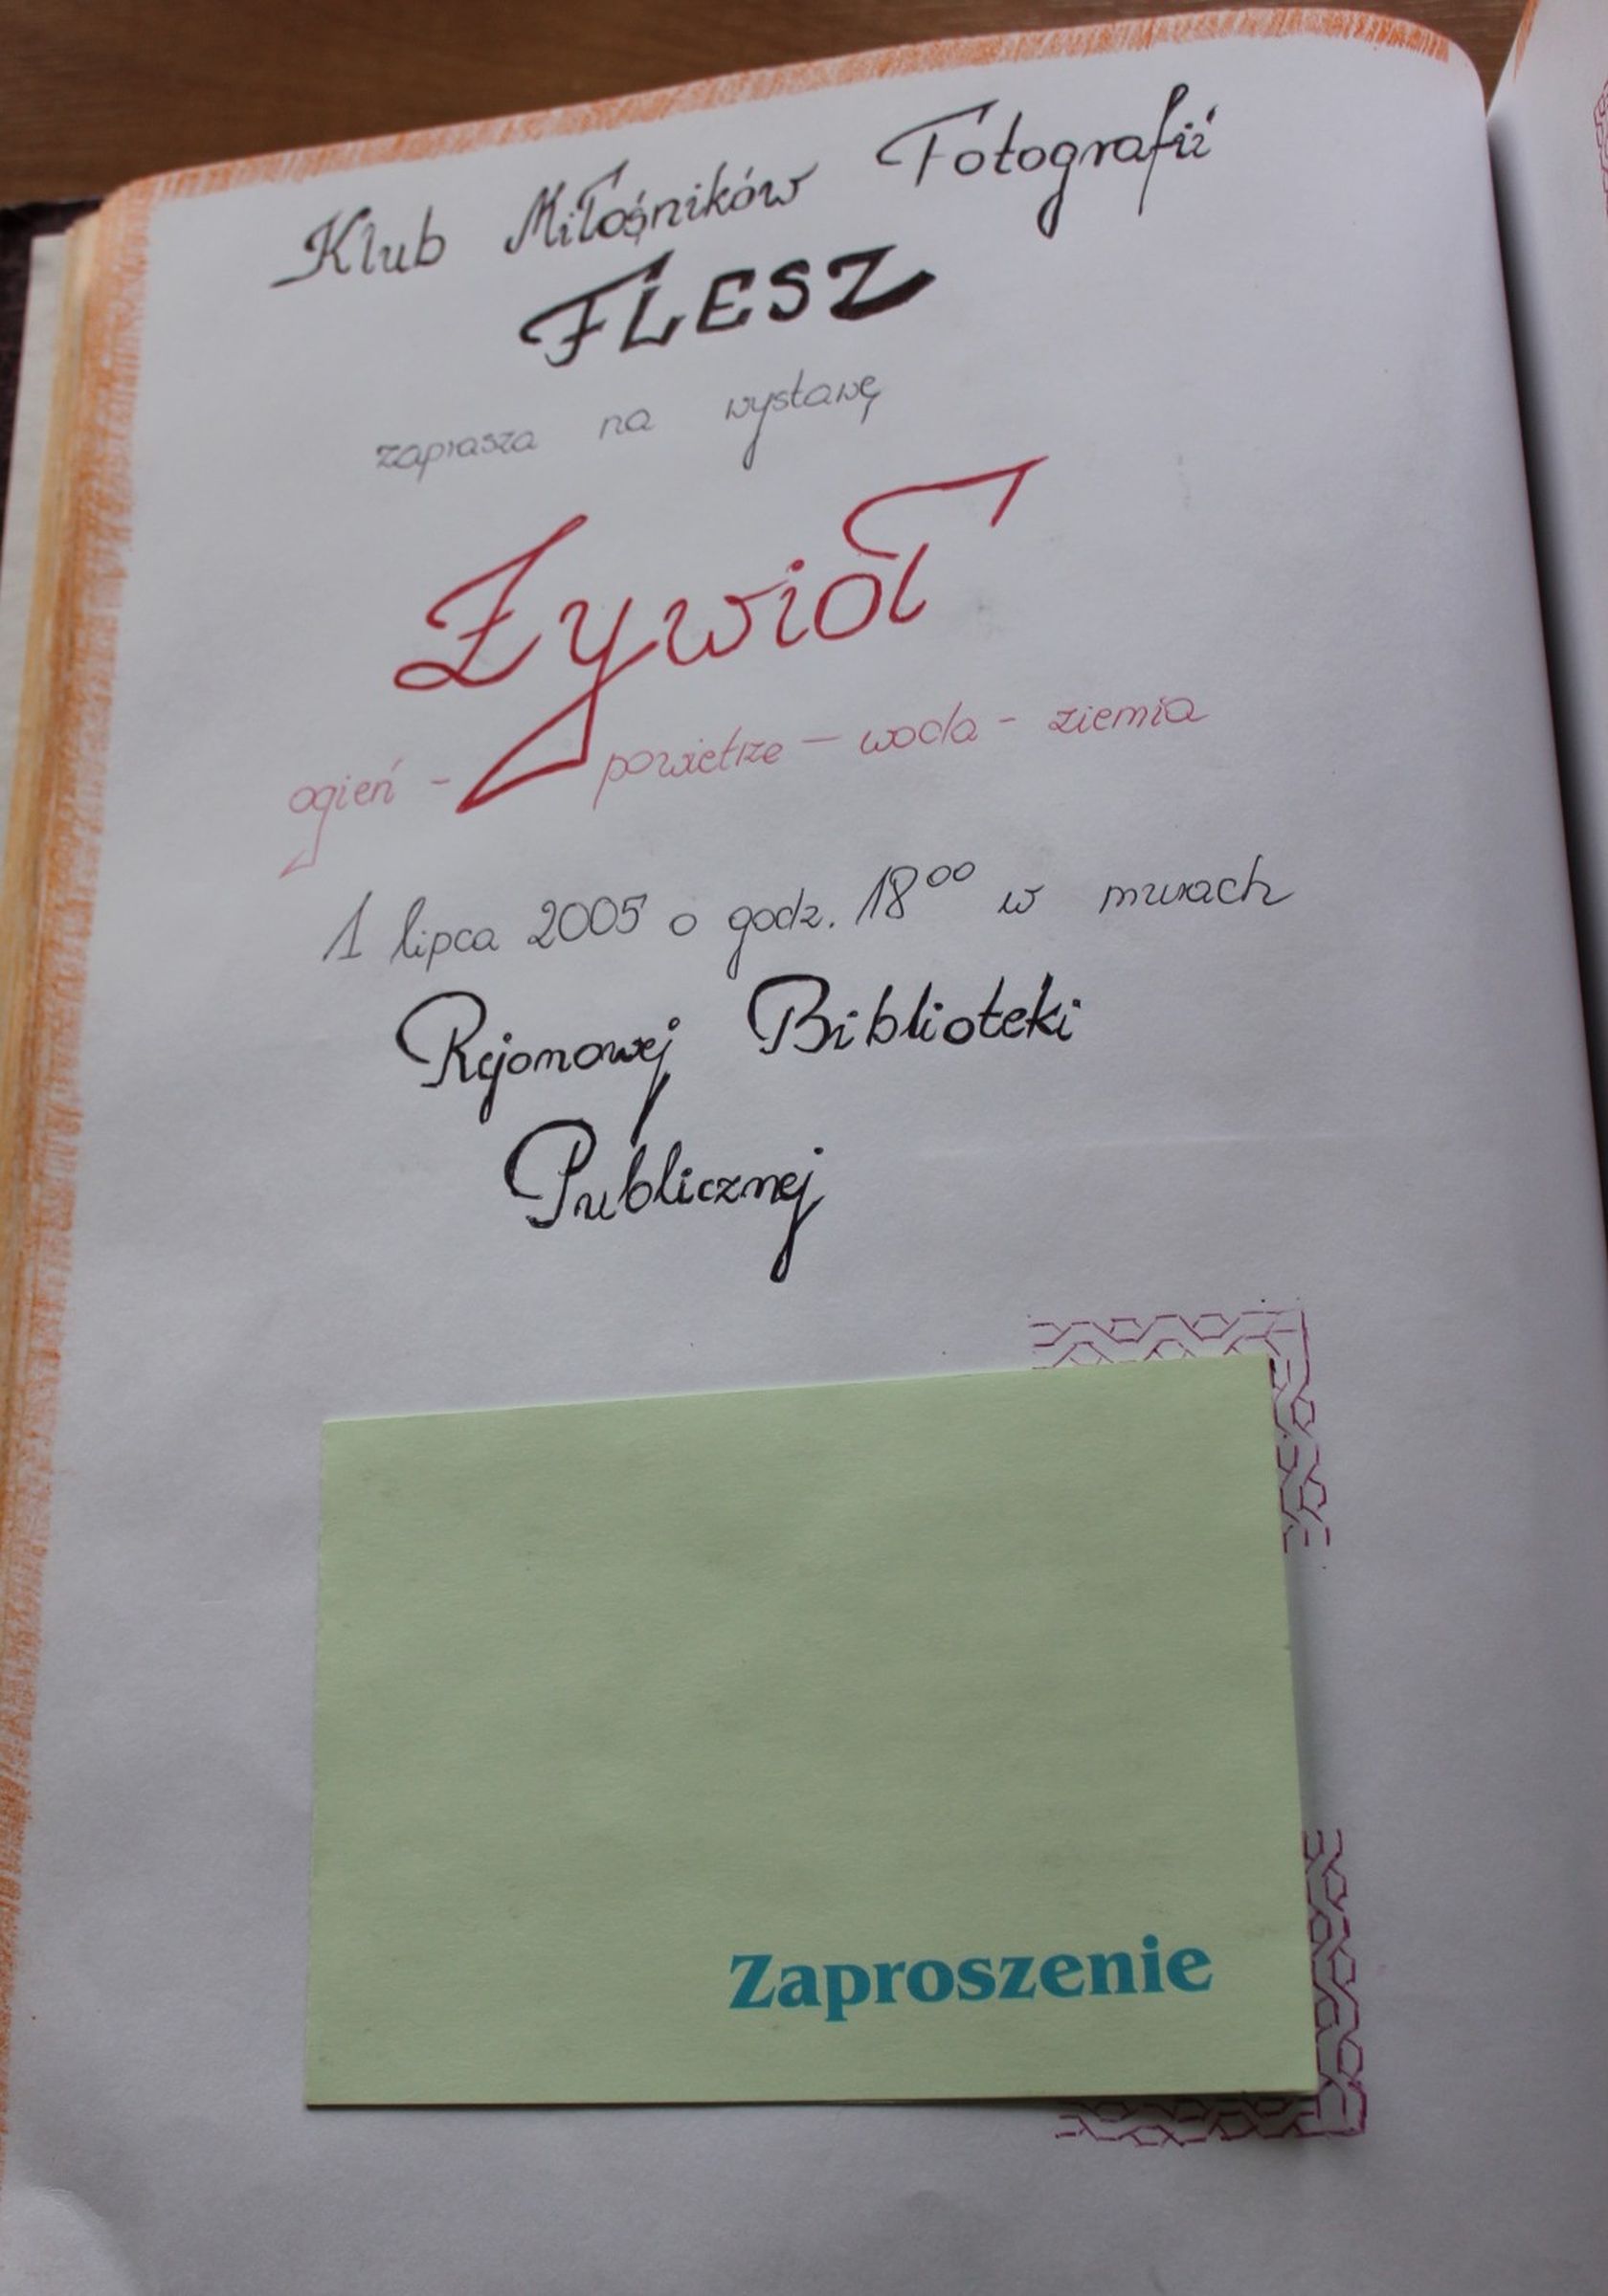 Klub Miłośników Fotografii
FLESZ
zaprasza na wystawę
Żywioł
ogień - powietrze - woda - ziemia
1 lipca 2005 o godz. 18⁰⁰ w murach
Rejonowej Biblioteki
Publicznej
Zaproszenie